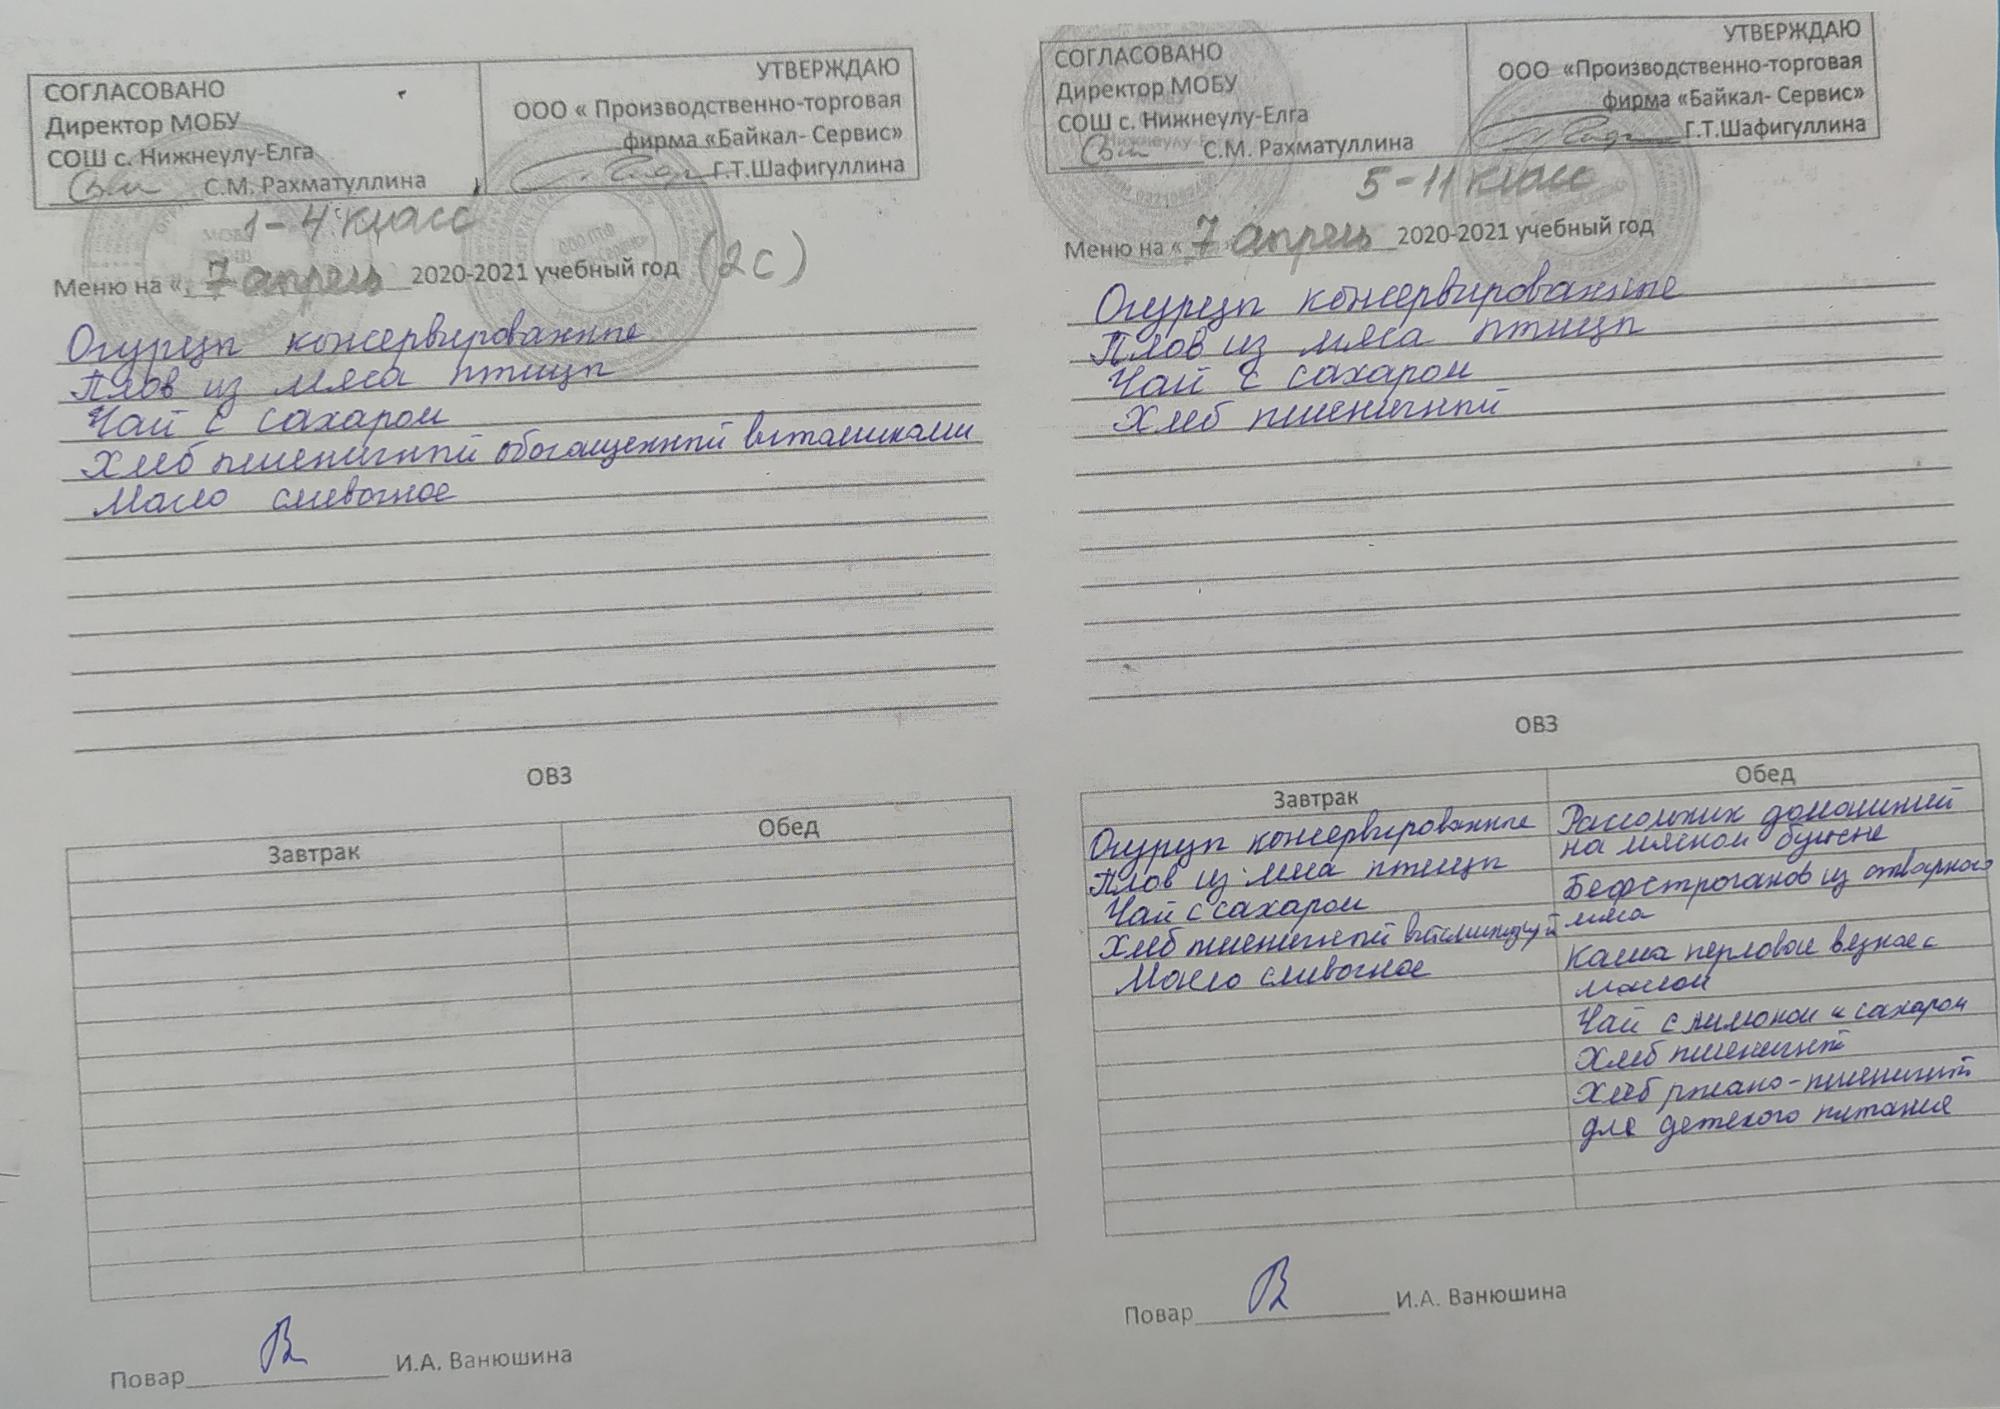 СОГЛАСОВАНО
Директор МОБУ
СОШ с. Нижнеулу-Елга
С.М. Рахматуллина
УТВЕРЖДАЮ
ООО « Производственно-торговая
фирма «Байкал- Сервис»
Г.Т.Шафигуллина
1-4 класс
Меню на « 7 апрель 2020-2021 учебный год (2с)
Огурцы консервированные
Плов из мяса птицы
Чай с сахаром
Хлеб пшеничный обогащенный витаминами
Масло сливочное
ОВЗ
Завтрак Обед
Повар И.А. Ванюшина
СОГЛАСОВАНО
Директор МОБУ
СОШ с. Нижнеулу-Елга
С.М. Рахматуллина
УТВЕРЖДАЮ
ООО «Производственно-торговая
фирма «Байкал- Сервис»
Г.Т.Шафигуллина
5-11 класс
Меню на « 7 апрель 2020-2021 учебный год
Огурцы консервированные
Плов из мяса птицы
Чай с сахаром
Хлеб пшеничный
ОВЗ
Завтрак
Огурцы консервированные
Плов из мяса птицы
Чай с сахаром
Хлеб пшеничный
Масло сливочное
Обед
Рассольник домашний
на мясном бульоне
Бефстроганов из отварного
мяса
Каша перловая вязкая с
маслом
Чай с лимоном и сахаром
Хлеб пшеничный
Хлеб ржано-пшеничный
для детского питания
Повар И.А. Ванюшина